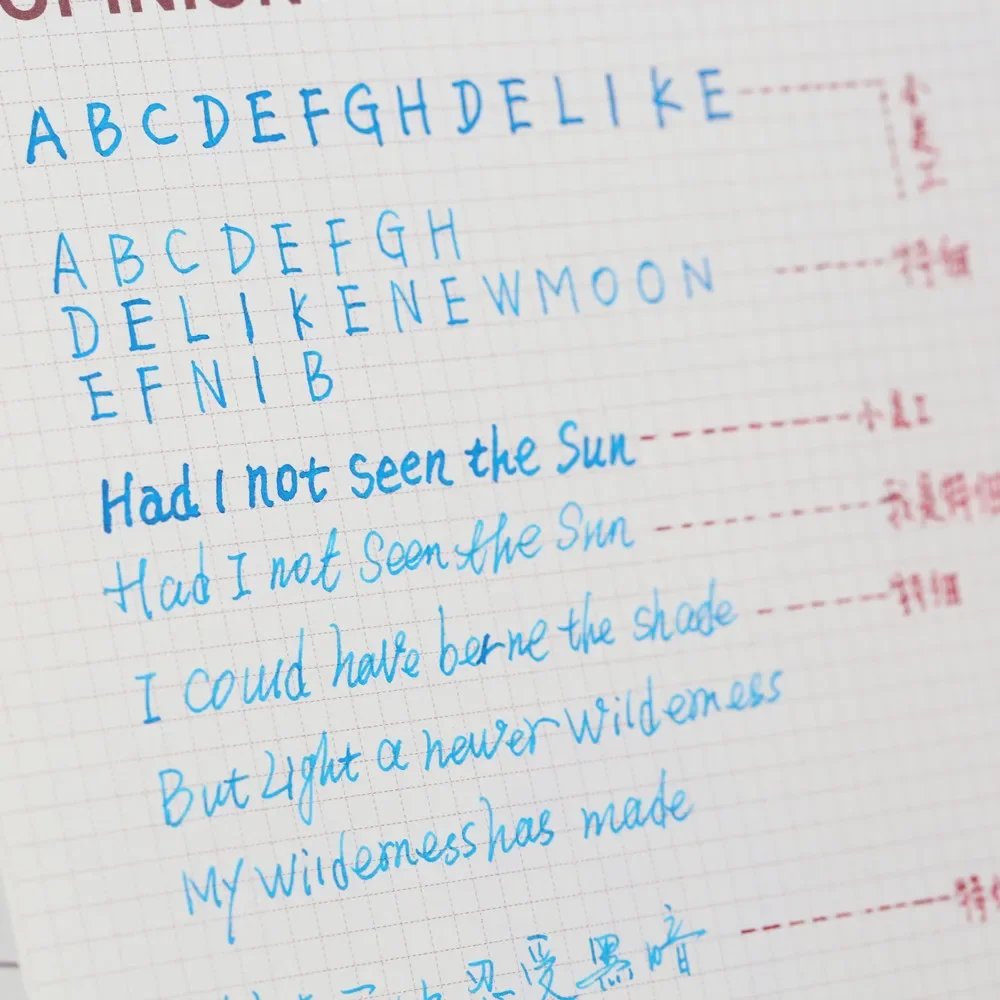 OPINION
ABCDEFGHDELIKE
小美工
ABCDEFGH
DELIKENEWMOON
特细
EFNIB
Had I not seen the Sun
小美工
Had I not Seen the Sun
我是特细
I could have berne the shade
特细
But Light a newer Wilderness
My Wilderness has made
特
忍受黑暗